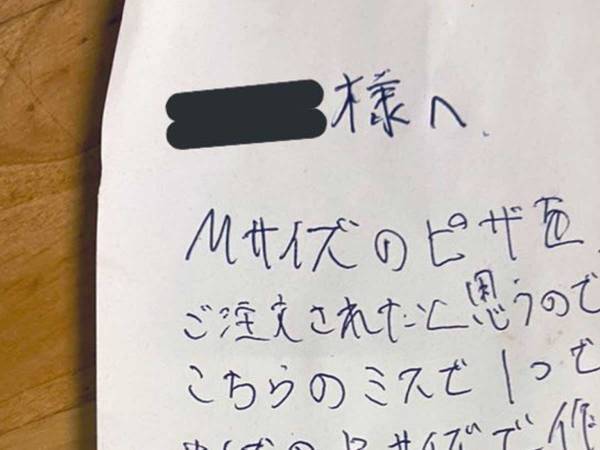 様へ
Mサイズのピザを
ご注文されたと思うので
こちらのミスで1つで
サイズで作